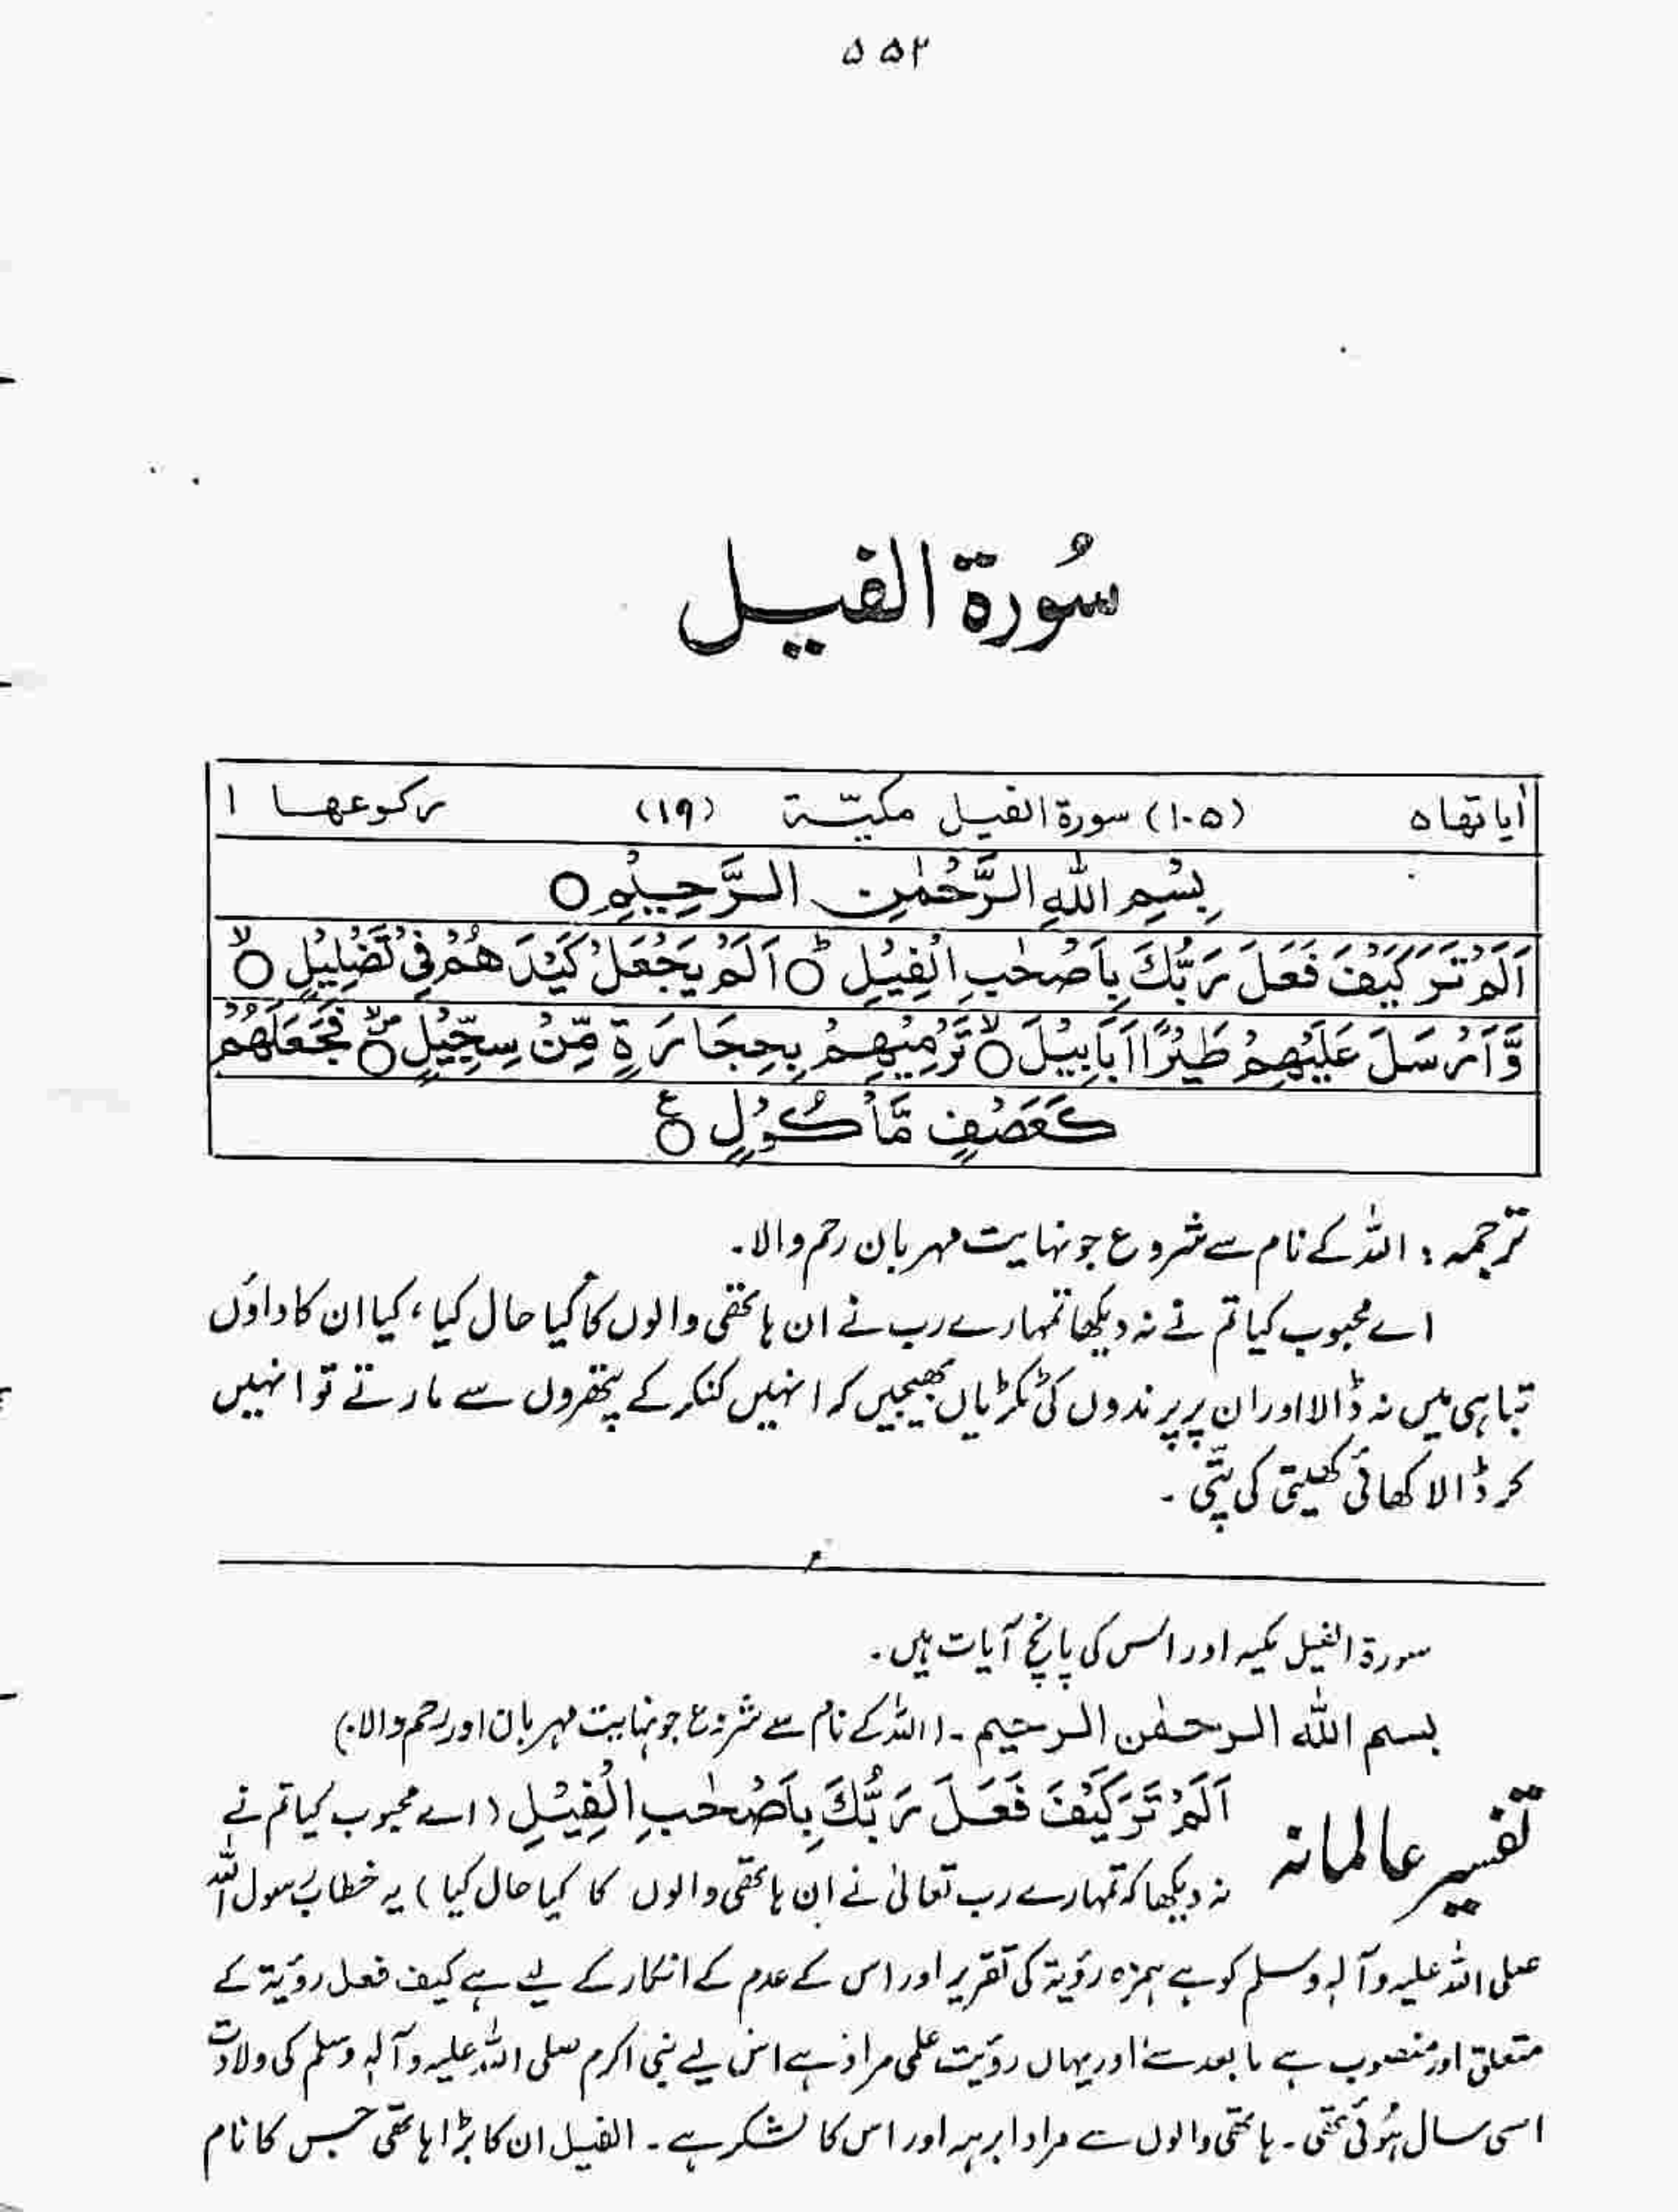 ۵۵۲
سُورة الفيل
اٰیاتها ۵ (۱۰۵) سورة الفيل مكيّة (۱۹) ركوعها ۱
بِسْمِ اللهِ الرَّحْمٰنِ الرَّحِيْمِ ○
اَلَمْ تَرَ كَيْفَ فَعَلَ رَبُّكَ بِاَصْحٰبِ الْفِيْلِ ○ؕ اَلَمْ يَجْعَلْ كَيْدَهُمْ فِيْ تَضْلِيْلٍ ○ۙ
وَّاَرْسَلَ عَلَيْهِمْ طَيْرًا اَبَابِيْلَ ○ۙ تَرْمِيْهِمْ بِحِجَارَةٍ مِّنْ سِجِّيْلٍ ○ۙ فَجَعَلَهُمْ
كَعَصْفٍ مَّاْكُوْلٍ ○ع
ترجمہ : اللہ کے نام سے شروع جو نہایت مہربان رحم والا۔
اے محبوب کیا تم نے نہ دیکھا تمہارے رب نے ان ہاتھی والوں کا کیا حال کیا ، کیا ان کا داؤں
تباہی میں نہ ڈالا اور ان پر پرندوں کی ٹکڑیاں بھیجیں کہ انہیں کنکر کے پتھروں سے مارتے تو انہیں
کر ڈالا کھائی کھیتی کی پتّی ۔
سورۃ الفیل مکیہ اور اس کی پانچ آیات ہیں۔
بسم الله الرحمٰن الرحيم ۔ (اللہ کے نام سے شروع جو نہایت مہربان اور رحم والا)
تفسیر عالمانہ اَلَمْ تَرَ كَيْفَ فَعَلَ رَبُّكَ بِاَصْحٰبِ الْفِيْلِ (اے محبوب کیا تم نے
نہ دیکھا کہ تمہارے رب تعالیٰ نے ان ہاتھی والوں کا کیا حال کیا) یہ خطاب رسول اللہ
صلی اللہ علیہ وآلہ وسلم کو ہے ہمزہ رؤیۃ کی تقریر اور اس کے عدم کے انکار کے لیے ہے کیف فعل رؤیۃ کے
متعلق اور منصوب ہے مابعد سے اور یہاں رؤیت علمی مراد ہے اس لیے نبی اکرم صلی اللہ علیہ وآلہ وسلم کی ولادت
اسی سال ہُوئی تھی ۔ ہاتھی والوں سے مراد ابرہہ اور اس کا لشکر ہے ۔ الفیل ان کا بڑا ہاتھی جس کا نام